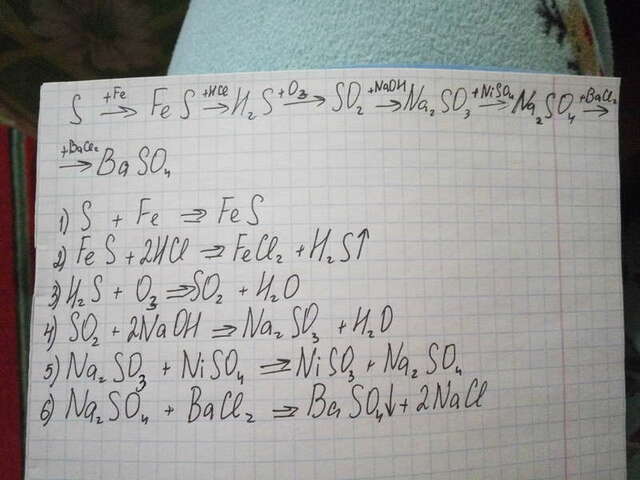 S +Fe → FeS +HCl → H₂S +O₃ → SO₂ +NaOH → Na₂SO₃ +NiSO₄ → Na₂SO₄ +BaCl₂ →
+BaCl₂ → BaSO₄
1) S + Fe ⇒ FeS
2) FeS + 2HCl ⇒ FeCl₂ + H₂S↑
3) H₂S + O₃ ⇒ SO₂ + H₂O
4) SO₂ + 2NaOH ⇒ Na₂SO₃ + H₂O
5) Na₂SO₃ + NiSO₄ ⇒ NiSO₃ + Na₂SO₄
6) Na₂SO₄ + BaCl₂ ⇒ BaSO₄↓ + 2NaCl